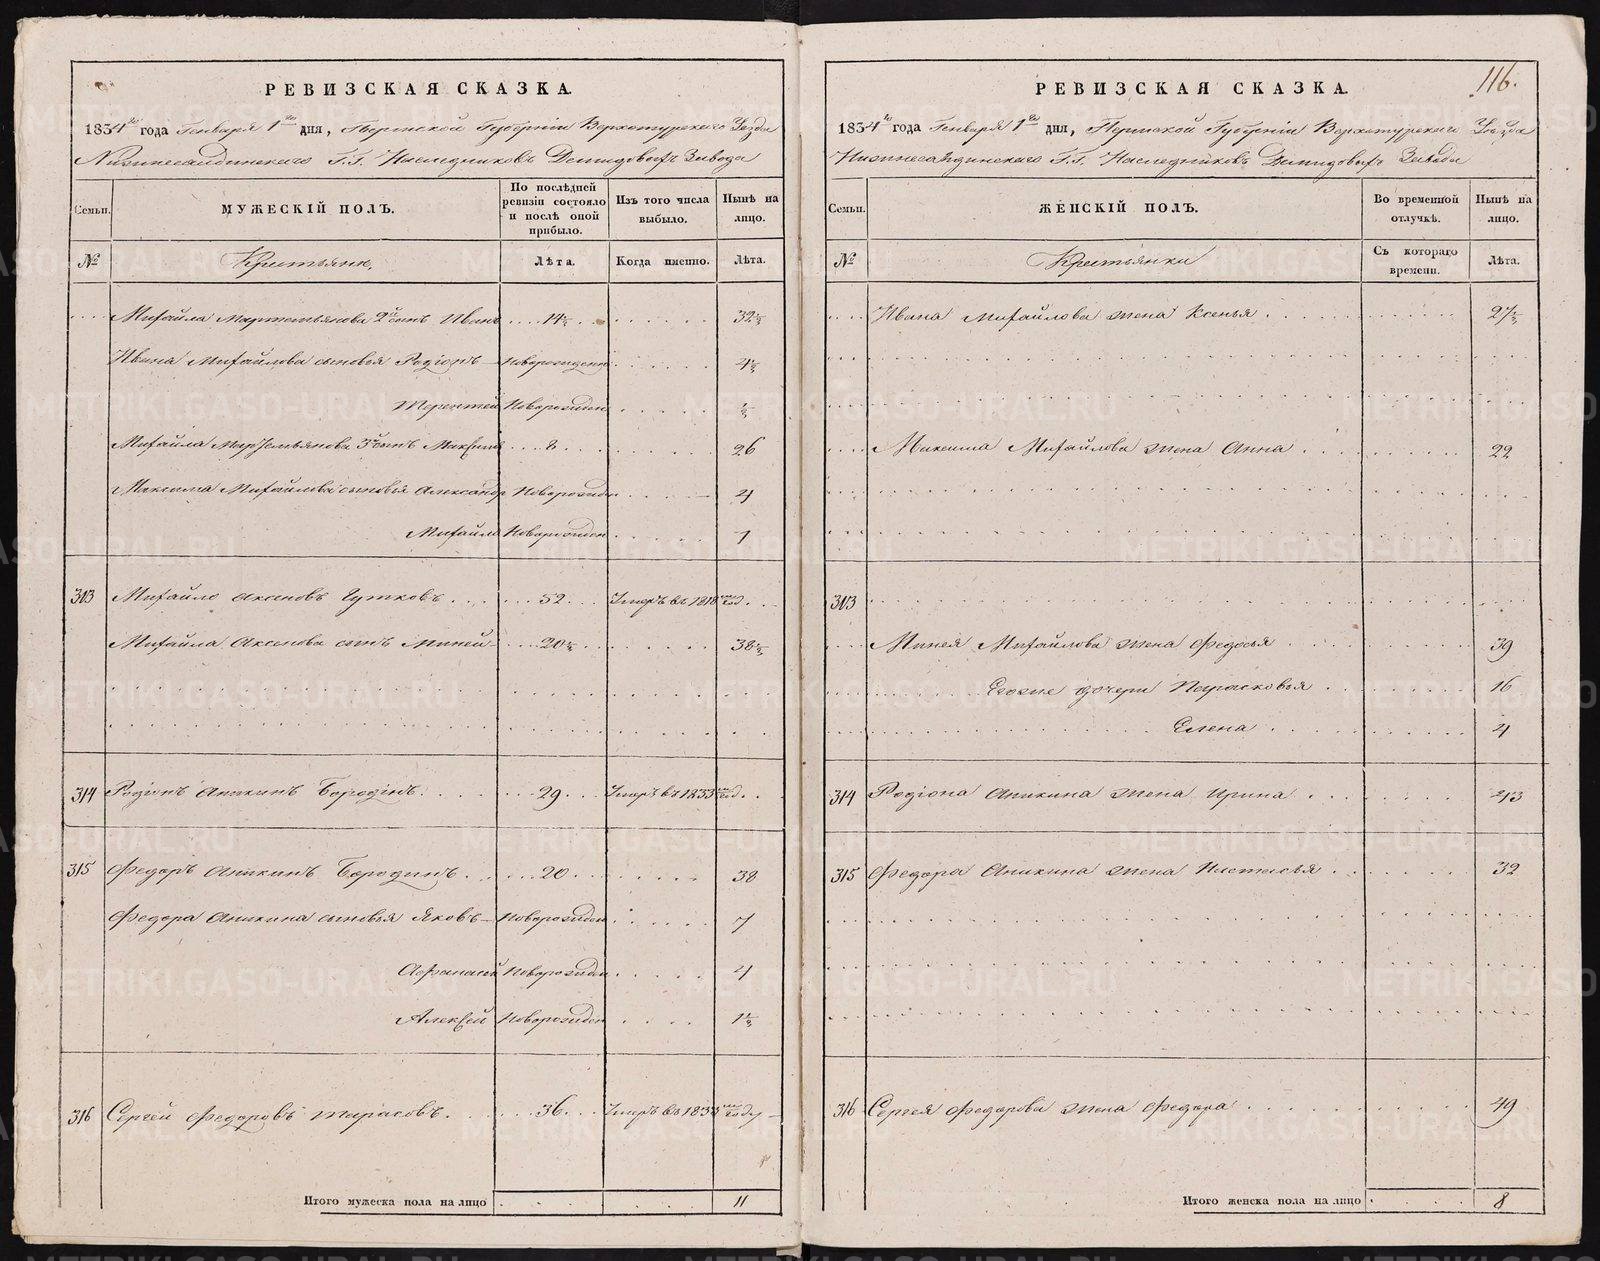 РЕВИЗСКАЯ СКАЗКА.
1834го года Генваря 1го дня, Пермской Губернiи Верхотурскаго Уезда
Нижнесалдинскаго Г.Г. Наследниковъ Демидовыхъ Завода
Семьи.
МУЖЕСКIЙ ПОЛЪ.
По послѣдней ревизiи состояло и послѣ оной прибыло.
Изъ того числа выбыло.
Нынѣ на лицо.
№
Крестьяне.
Лѣта.
Когда именно.
Лѣта.
Михайла Мартемьянова 2й сынъ Иванъ 14½ 32½
Ивана Михайлова сыновья Родiонъ Новорожденъ 4½
Терентей Новорожден ½
Михайла Мартемьянова 3й сынъ Максимъ 8 26
Максима Михайлова сыновья Александр Новорожден 4
Михайло Новорожден 1
313 Михайло Аксеновъ Чутковъ 52 Умеръ въ 1818 год
Михайла Аксенова сынъ Миней 20½ 38½
314 Родiонъ Аникинъ Бородинъ 29 Умеръ въ 1833 год
315 Федоръ Аникинъ Бородинъ 20 38
Федора Аникина сыновья Яковъ Новорожден 7
Афанасей Новорожден 4
Алексей Новорожден 1½
316 Сергей Федоровъ Тарасовъ 36 Умеръ въ 1833 году
Итого мужеска пола на лицо 11
116.
РЕВИЗСКАЯ СКАЗКА.
1834го года Генваря 1го дня, Пермской Губернiи Верхотурскаго Уезда
Нижнесалдинскаго Г.Г. Наследниковъ Демидовыхъ Завода
Семьи.
ЖЕНСКIЙ ПОЛЪ.
Во временной отлучкѣ.
Нынѣ на лицо.
№
Крестьянки
Съ котораго времени.
Лѣта.
Ивана Михайлова жена Ксенья 27½
Максима Михайлова жена Анна 22
313
Минея Михайлова жена Федосья 39
Егоже дочери Парасковья 16
Елена 4
314 Родiона Аникина жена Ирина 43
315 Федора Аникина жена Настасья 32
316 Сергея Федорова жена Федора 49
Итого женска пола на лицо 8
METRIKI.GASO-URAL.RU